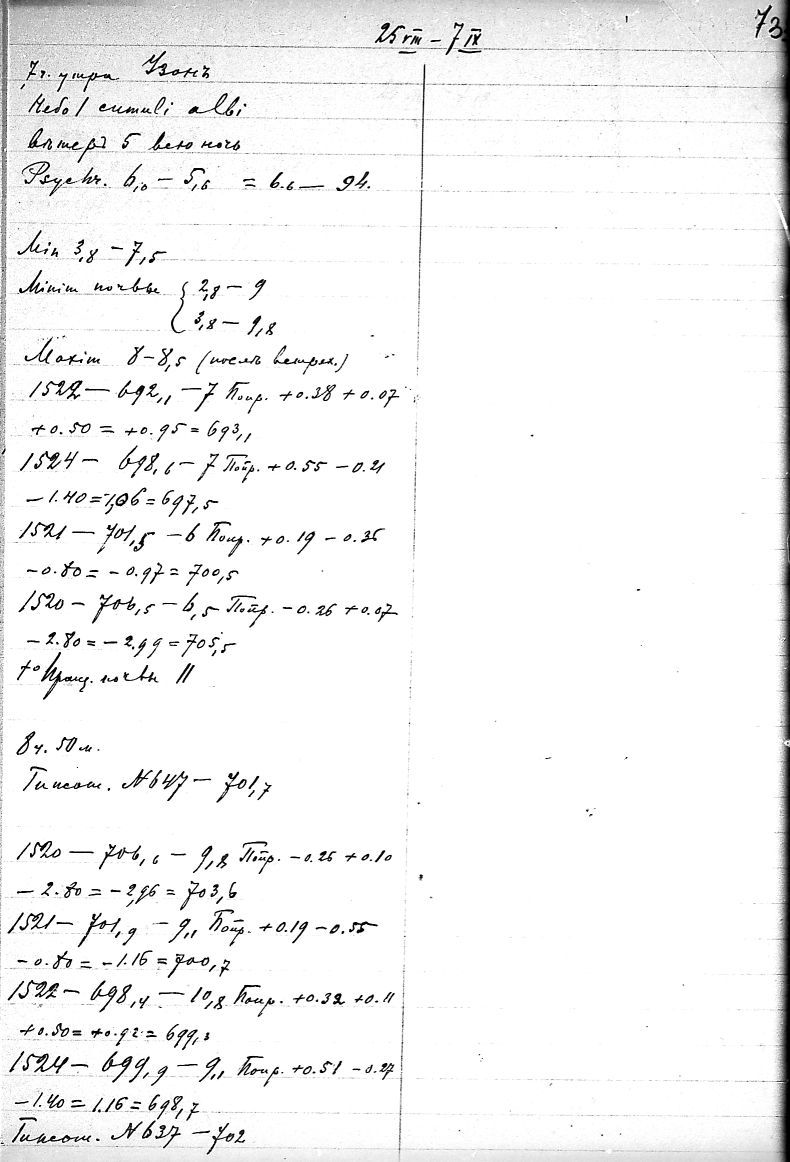 73
25 VIII – 7 IX
7 ч. утра Узонъ
Небо 1 cumuli albi
вѣтеръ 5 всю ночь
Psychr. 6,0 – 5,6 = 6.6 — 94.
Min 3,8 – 7,5
Minim почвы { 2,8 – 9
3,8 – 9,8
Maxim 8 – 8,5 (послѣ встрях.)
1522 — 692,1 – 7 Попр. +0.38 +0.07
+0.50 = +0.95 = 693,1
1524 – 698,6 – 7 Попр. +0.55 – 0.21
– 1.40 = 1,06 = 697,5
1521 — 701,5 – 6 Попр. +0.19 – 0.36
– 0.80 = – 0.97 = 700,5
1520 – 708,5 – 6,5 Попр. – 0.26 +0.07
– 2.80 = – 2.99 = 705,5
t° почвы 11
8 ч. 50 м.
Гипсот. N 647 – 701,7
1520 — 706,6 – 9,8 Попр. – 0.26 +0.10
– 2.80 = – 2,96 = 703,6
1521 – 701,9 – 9,1 Попр. +0.19 – 0.55
– 0.80 = – 1.16 = 700,7
1522 – 698,4 — 10,8 Попр. +0.32 +0.11
+0.50 = +0.92 = 699,3
1524 – 699,9 – 9,1 Попр. +0.51 – 0.27
– 1.40 = 1.16 = 698,7
Гипсот. N 637 – 702